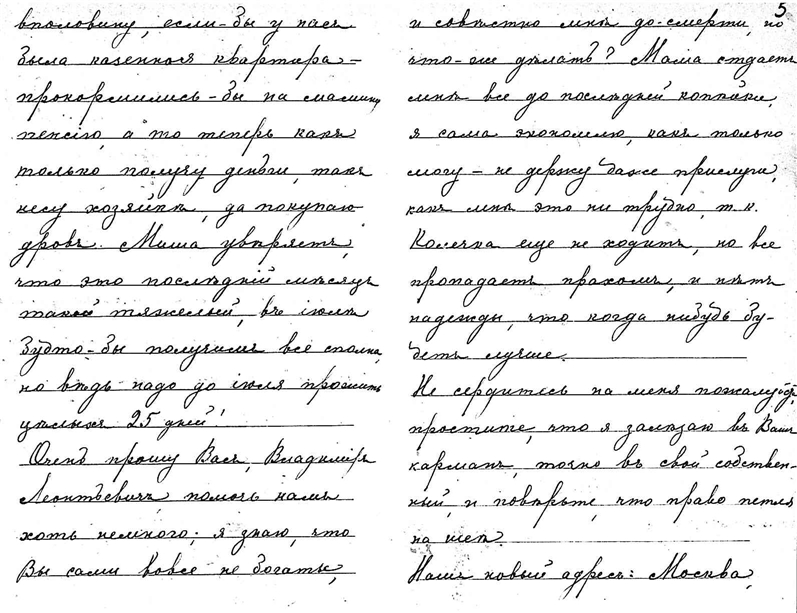 вполовину, если-бы у насъ
была казенная квартира –
прокормились-бы на мамину
пенсію, а то теперь какъ
только получу деньги, такъ
несу хозяйкѣ, да покупаю
дровъ. Маша увѣряетъ,
что это послѣдній мѣсяцъ
такой тяжелый, въ іюлѣ
будто-бы получимъ все сполна,
но вѣдь надо до іюля прожить
цѣлыхъ 25 дней!
Очень прошу Васъ, Владиміръ
Леонтьевичъ, помочь намъ
хоть немного; я знаю, что
Вы сами вовсе не богаты,
5
и совѣстно мнѣ до-смерти, но
что-же дѣлать? Мама отдаетъ
мнѣ все до послѣдней копѣйки,
я сама экономлю, какъ только
могу – не держу даже прислуги,
какъ мнѣ это ни трудно, т.к.
Колечка еще не ходитъ, но все
пропадаетъ прахомъ, и нѣтъ
надежды, что когда нибудь бу-
детъ лучше.
Не сердитесь на меня пожалуйста,
простите, что я залѣзаю въ Вашъ
карманъ, точно въ свой собствен-
ный, и повѣрьте, что право петля
на шеѣ.
Нашъ новый адресъ: Москва,